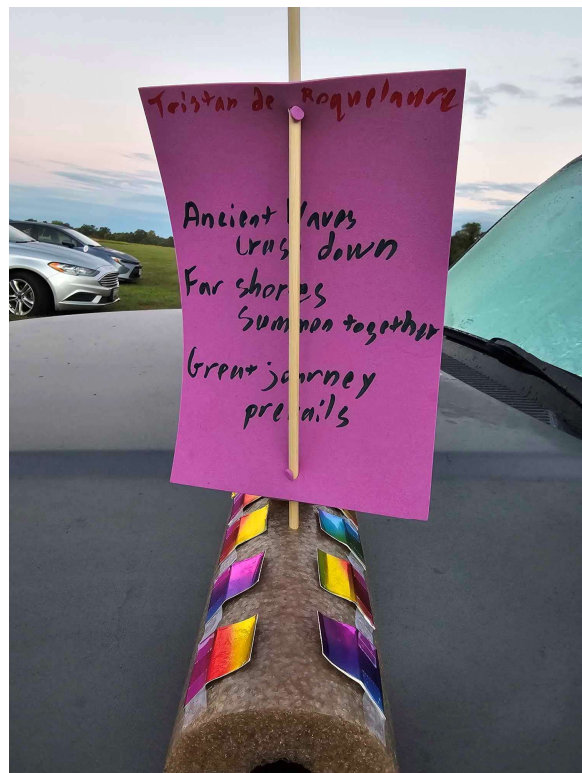 Tristan de Roquelaure
Ancient Waves
Crash down
Far shores
Summon together
Great journey
prevails